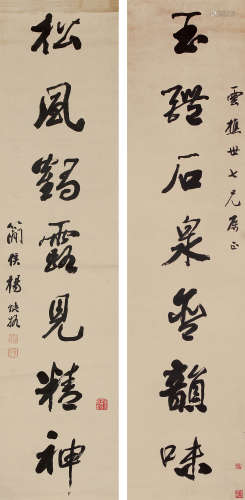 雲樵世七兄屬正
玉醴石泉含韻味
松風鶴露見精神
簡侯楊能格